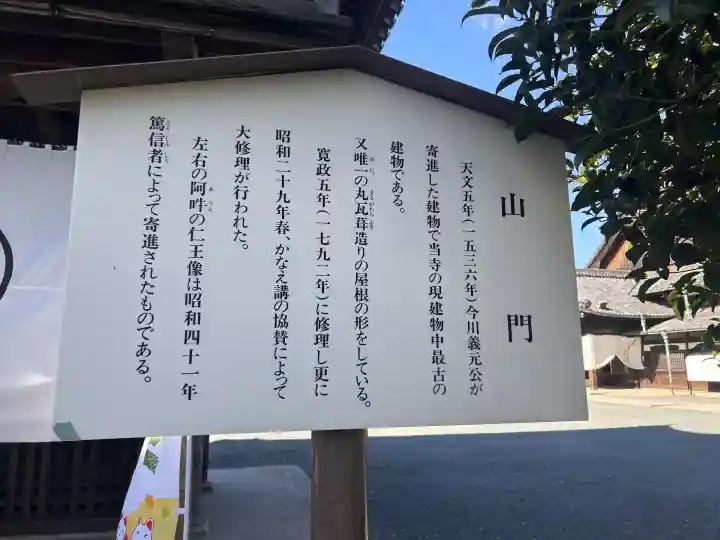 山門
天文五年(一五三六年)今川義元公が
寄進した建物で当寺の現建物中最古の
建物である。
又唯一の丸瓦葺造りの屋根の形をしている。
寛政五年(一七九二年)に修理し更に
昭和二十九年春、かなえ講の協賛によって
大修理が行われた。
左右の阿吽の仁王像は昭和四十一年
篤信者によって寄進されたものである。